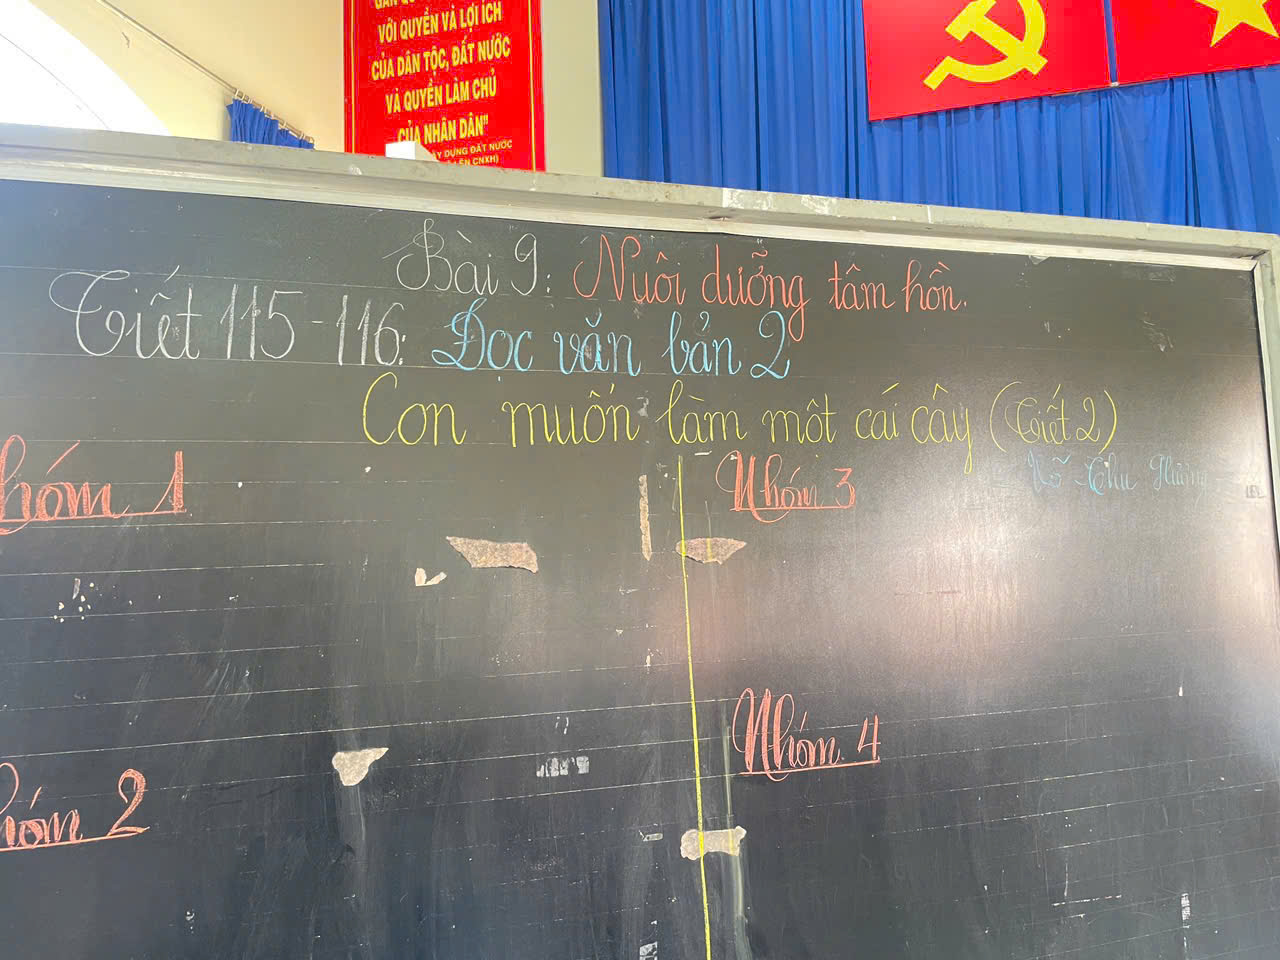 VỚI QUYỀN VÀ LỢI ÍCH
CỦA DÂN TỘC, ĐẤT NƯỚC
VÀ QUYỀN LÀM CHỦ
CỦA NHÂN DÂN"
DỰNG ĐẤT NƯỚC
CNXH)
Bài 9: Nuôi dưỡng tâm hồn.
Tiết 115-116: Đọc văn bản 2
Con muốn làm một cái cây (Tiết 2)
Võ Thu Hương
hóm 1
Nhóm 3
Nhóm 4
hóm 2